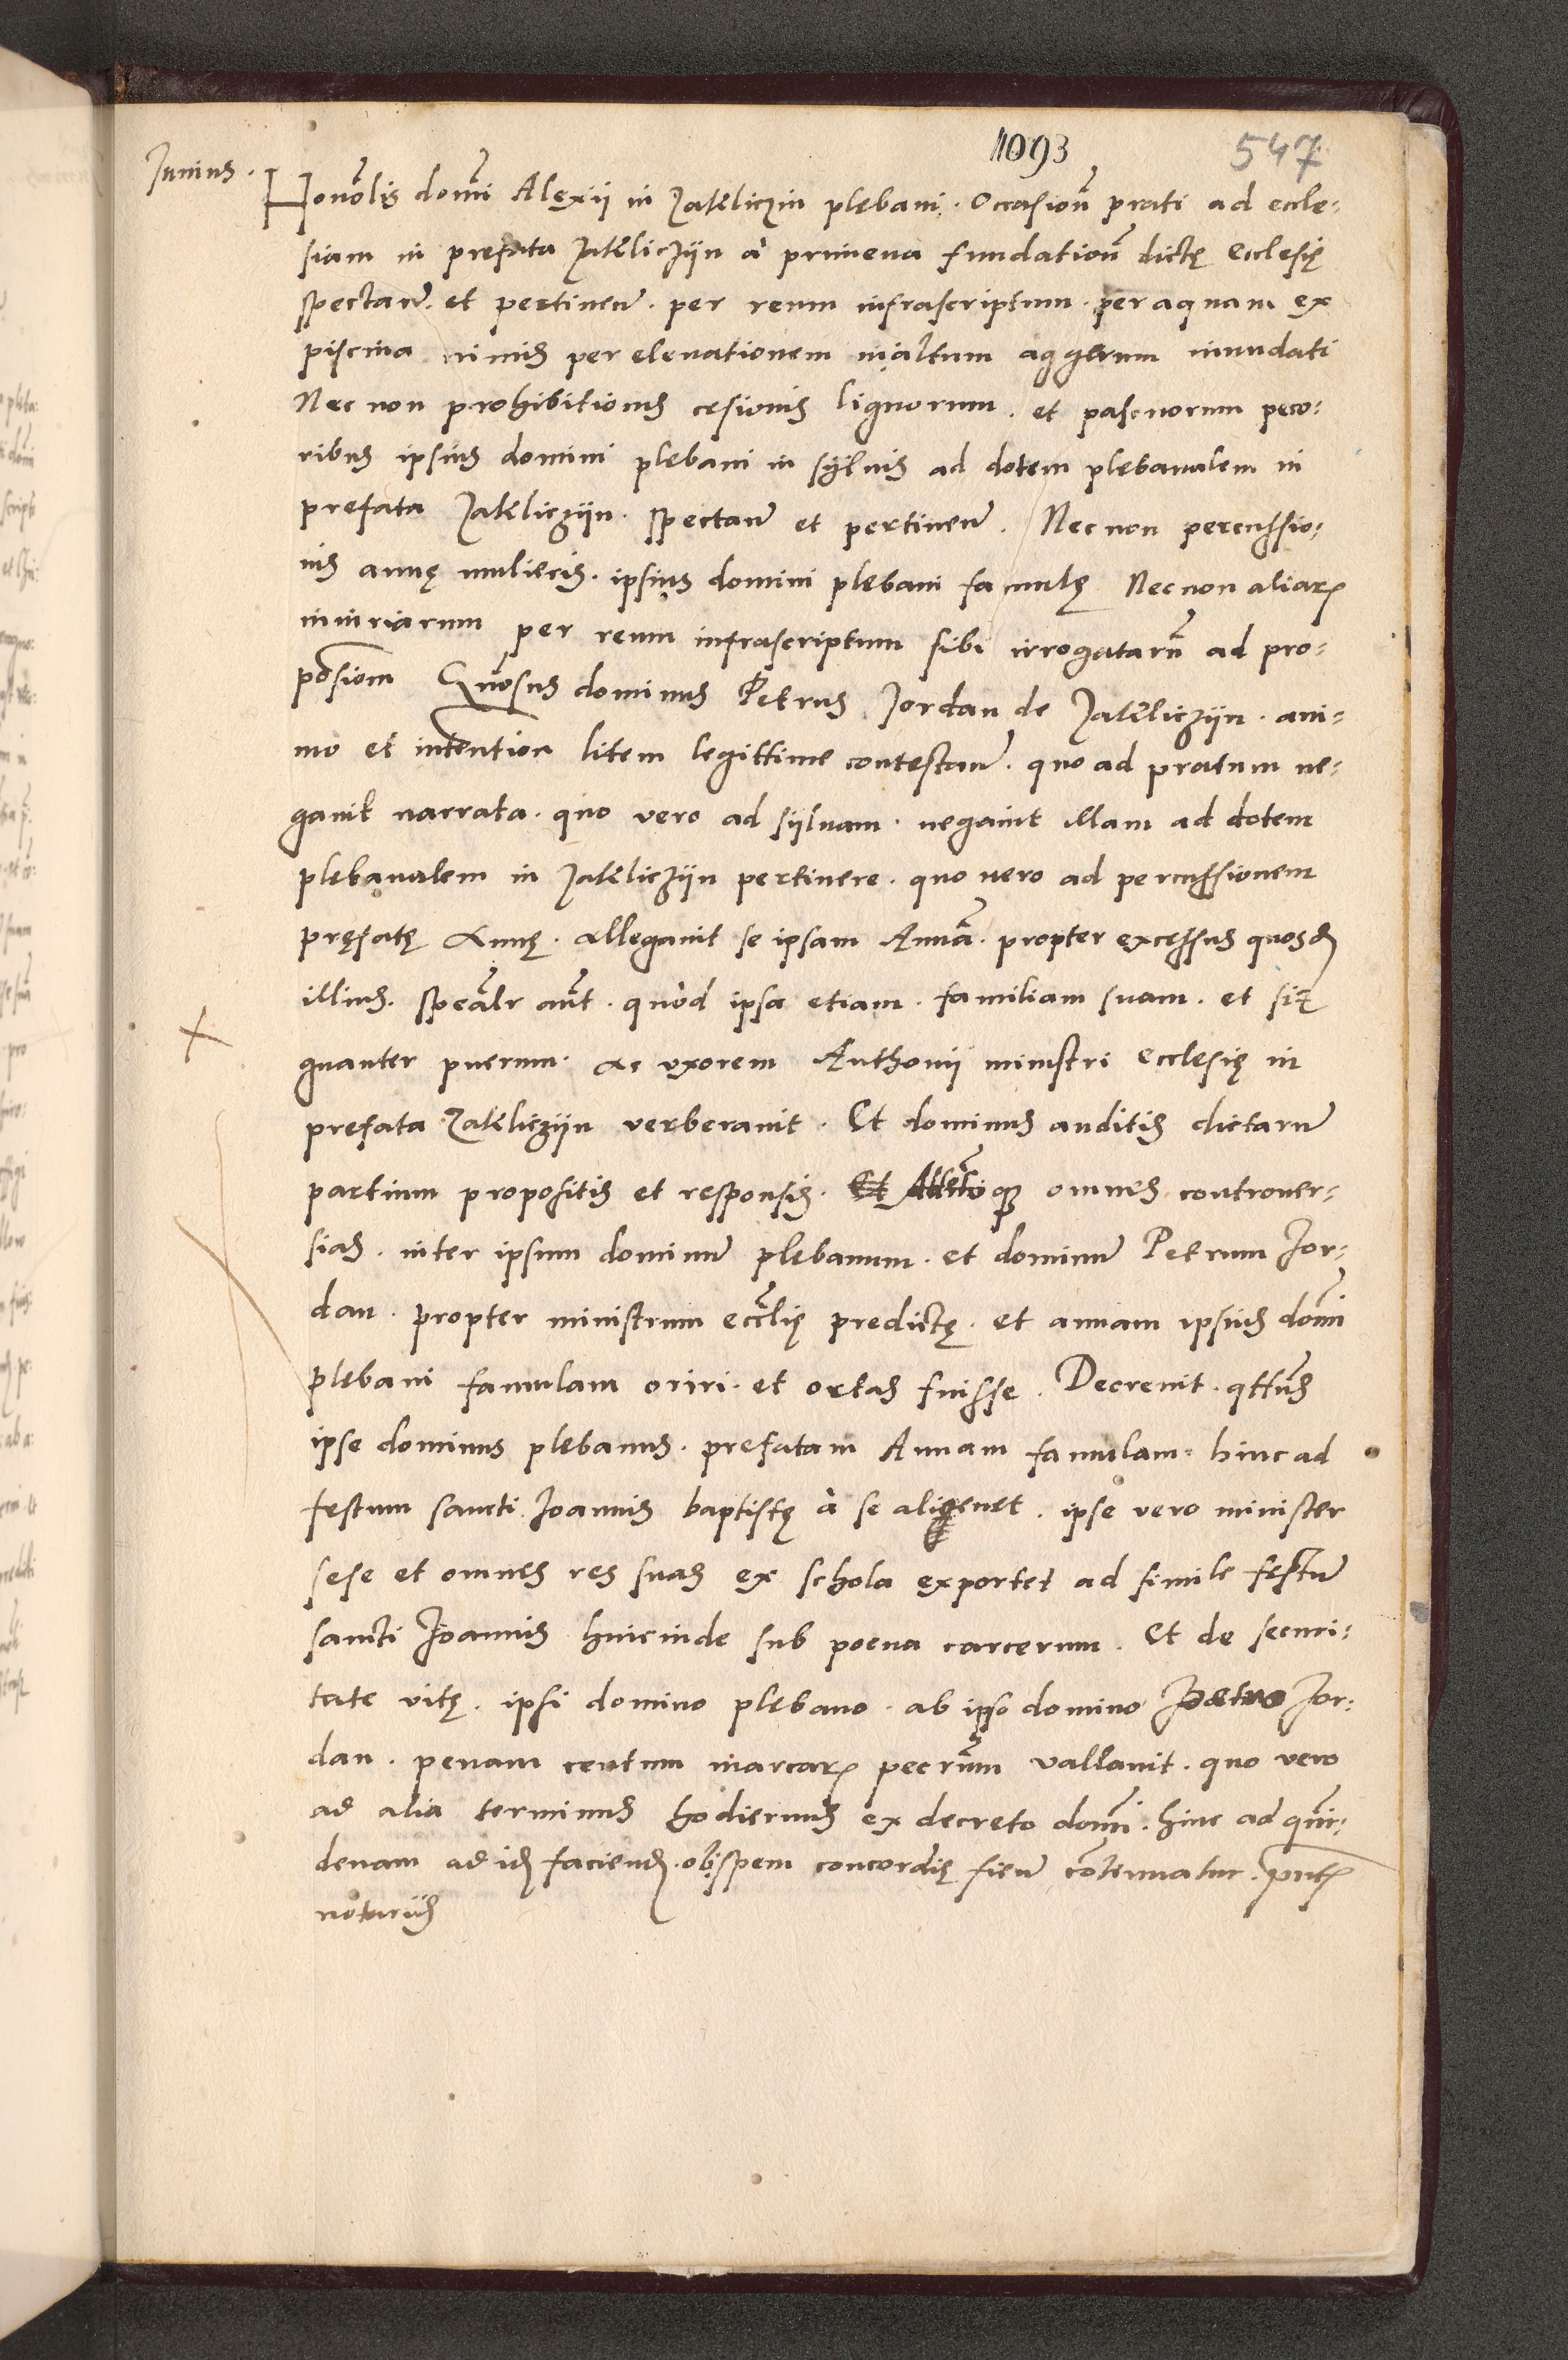 1093
547
Junius.
Honorlis domi Alexii in Zathliczin plebani. Occasione prati ad eccle-
siam in prefata Zathliczÿn à primeua fundatione dictę Ecclesię
spectan. et pertinen. per reum infrascriptum. per aquam ex
piscina nimis per eleuationem in altum aggerum inundati
Nec non prohibitionis cęsionis lignorum. et pascuorum peco-
ribus ipsius domini plebani in sÿluis ad dotem plebanalem in
prefata Zathliczÿn. spectan et pertinen. Nec non percussio-
nis annę mulieris. ipsius domini plebani famulę Nec non aliar
iniuriarum per reum infrascriptum sibi irrogatarum ad pro-
posiom Gnosus dominus Petrus Jordan de Zathliczÿn. ani-
mo et intention litem legittime contestan. quo ad pratum ne-
gauit narrata. quo vero ad sÿluam. negauit illam ad dotem
plebanalem in Zathliczÿn pertinere. quo uero ad percussionem
pręfatę Annę. allegauit se ipsam Annā. propter excessus quosd
illius. spēalr aūt. quòd ipsa etiam. familiam suam. et sig-
nanter puerum. ac vxorem Anthonii ministri Ecclesię in
prefata Zathliczÿn verberauit. Et dominus auditis dictarum
partium propositis et responsis. Et Attento q omnes controuer-
sias. inter ipsum dominum plebanum. et dominum Petrum Jor-
dan. propter ministrum ecclię predictę. et annam ipsius domi
plebani famulam oriri. et ortas fuisse. Decreuit. qtūs
ipse dominus plebanus. prefatam Annam famulam. hinc ad
festum sancti Joannis baptistę à se alienet. ipse vero minister
sese et omnes res suas ex schola exportet ad simile festum
sancti Joannis hincinde sub poena carcerum. Et de securi-
tate vitę. ipsi domino plebano. ab ipso domino Petro Jor-
dan. penam centum marcar pecrum vallauit. quo vero
ad alia terminus hodiernus ex decreto domi. hinc ad quin-
denam ad id faciend. ob spem concordię fien continuatur. pntes
notarius